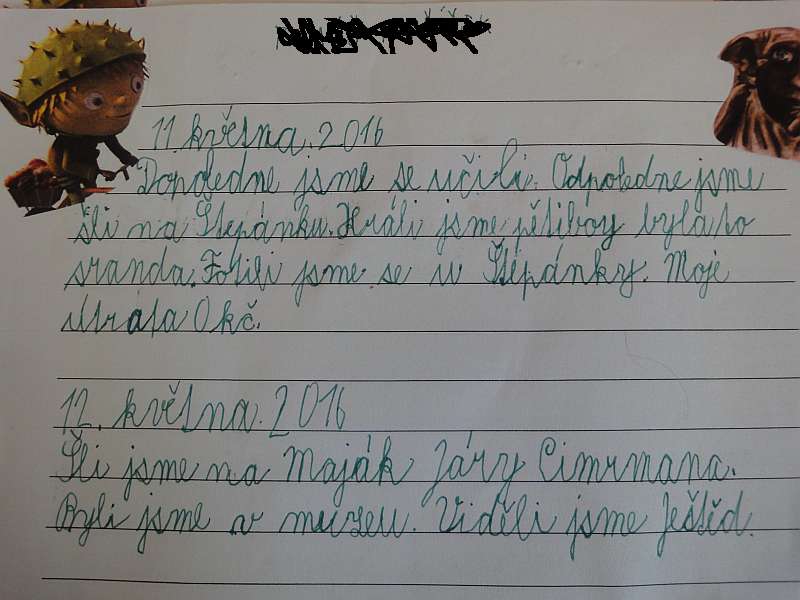 11. května. 2016
Dopoledne jsme se učili. Odpoledne jsme
šli na Štepánku. Hráli jsme pětiboy byla to
sranda. Fotili jsme se u Štěpánky. Moje
útrata 0 kč.
12. května. 2016
Šli jsme na Maják Járy Cimrmana.
Byli jsme v muzeu. Viděli jsme Ještěd.